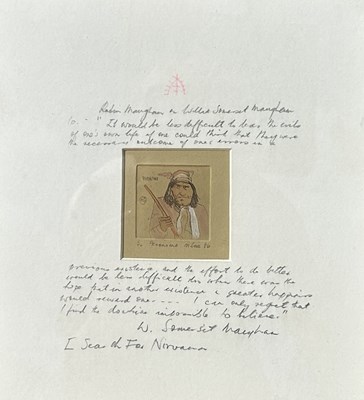 Robin Maugham on Willie Somerset Maugham
"It would be less difficult to bear the evils
of one's own life if we could think that they were
the necessary outcome of one's errors in a
previous existence and the effort to do better
would be less difficult too when there was the
hope that in another existence a greater happiness
would reward one - - - - I can only regret that
I find the doctrine impossible to believe"
W. Somerset Maugham
I Search For Nirvana